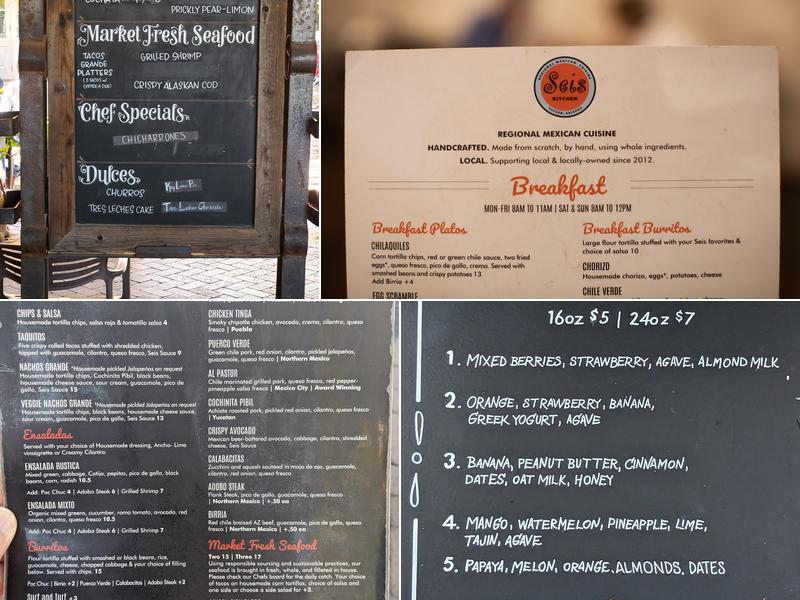 PRICKLY PEAR-LIMON
Market Fresh Seafood
TACOS
GRANDE
PLATTERS
GRILLED SHRIMP
CRISPY ALASKAN COD
Chef Specials
CHICHARRONES
Dulces
CHURROS
Key Lime Pie
TRES LECHES CAKE
Seis
KITCHEN
REGIONAL MEXICAN CUISINE
HANDCRAFTED. Made from scratch, by hand, using whole ingredients.
LOCAL. Supporting local & locally-owned since 2012.
Breakfast
MON-FRI 8AM TO 11AM | SAT & SUN 8AM TO 12PM
Breakfast Platos
CHILAQUILES
Corn tortilla chips, red or green chile sauce, two fried
eggs*, queso fresco, pico de gallo, crema. Served with
smashed beans and crispy potatoes 13
Add Birria +4
EGG SCRAMBLE
Breakfast Burritos
Large flour tortilla stuffed with your Seis favorites &
choice of salsa 10
CHORIZO
Housemade chorizo, eggs*, potatoes, cheese
CHILE VERDE
CHIPS & SALSA
Housemade tortilla chips, salsa roja & tomatillo salsa 4
TAQUITOS
Five crispy rolled tacos stuffed with shredded chicken,
topped with guacamole, cilantro, queso fresco, Seis Sauce 9
NACHOS GRANDE *Housemade pickled Jalapeños on request
Housemade tortilla chips, Cochinita Pibil, black beans,
housemade cheese sauce, sour cream, guacamole, pico de
gallo, Seis Sauce 15
VEGGIE NACHOS GRANDE *Housemade pickled Jalapeños on request
Housemade tortilla chips, black beans, housemade cheese sauce,
sour cream, guacamole, pico de gallo, Seis Sauce 13
Ensaladas
Served with your choice of Housemade dressing, Ancho- Lime
vinaigrette or Creamy Cilantro
ENSALADA RUSTICA
Mixed green, cabbage, Cotija, pepitas, pico de gallo, black
beans, corn, radish 10.5
Add: Poc Chuc 4 | Adobo Steak 6 | Grilled Shrimp 7
ENSALADA MIXTO
Organic mixed greens, cucumber, roma tomato, avocado, red
onion, cilantro, queso fresco 10.5
Add: Poc Chuc 4 | Adobo Steak 6 | Grilled Shrimp 7
Burritos
Flour tortilla stuffed with smashed or black beans, rice,
guacamole, cheese, chopped cabbage & your choice of filling
below. Served with chips. 15
Poc Chuc | Birria +2 | Puerco Verde | Calabacitas | Adobo Steak +2
Surf and Turf +3
CHICKEN TINGA
Smoky chipotle chicken, avocado, crema, cilantro, queso
fresco | Puebla
PUERCO VERDE
Green chile pork, red onion, cilantro, pickled jalapeños,
guacamole, queso fresco | Northern Mexico
AL PASTOR
Chile marinated grilled pork, queso fresco, red pepper-
pineapple salsa fresco | Mexico City | Award Winning
COCHINITA PIBIL
Achiote roasted pork, pickled red onion, cilantro, queso fresco
| Yucatan
CRISPY AVOCADO
Mexican beer-battered avocado, cabbage, cilantro, shredded
cheese, Seis Sauce
CALABACITAS
Zucchini and squash sauteed in mojo de ajo, guacamole,
cilantro, red onion, queso fresco
ADOBO STEAK
Flank Steak, pico de gallo, guacamole, queso fresco
| Northern Mexico | +.50 ea
BIRRIA
Red chile braised AZ beef, guacamole, pico de gallo, queso
fresco | Northern Mexico | +.50 ea
Market Fresh Seafood
Two 15 | Three 17
Using responsible sourcing and sustainable practices, our
seafood is brought in fresh, whole, and filleted in house.
Please check our Chefs board for the daily catch. Your choice
of tacos on housemade corn tortillas, choice of salsa and
one side or choose a side salad for +3.
16oz $5 | 24oz $7
1. MIXED BERRIES, STRAWBERRY, AGAVE, ALMOND MILK
2. ORANGE, STRAWBERRY, BANANA,
GREEK YOGURT, AGAVE
3. BANANA, PEANUT BUTTER, CINNAMON,
DATES, OAT MILK, HONEY
4. MANGO, WATERMELON, PINEAPPLE, LIME,
TAJIN, AGAVE
5. PAPAYA, MELON, ORANGE, ALMONDS, DATES